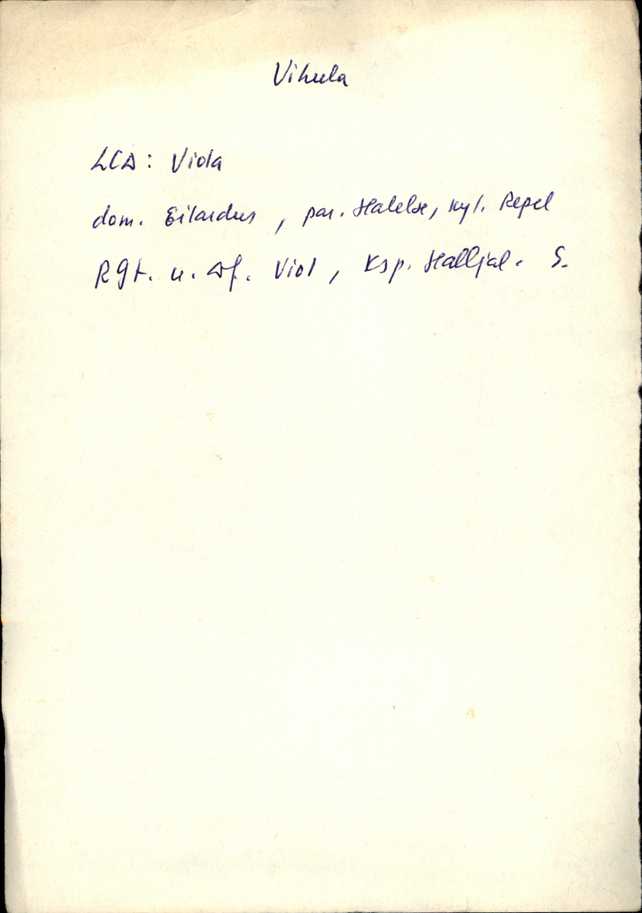 Vihula
LCD: Viola
dom. Eilardus, par. Halelæ, Kyl. Repel
Rgt. u. Df. Viol, Ksp. Halljal. S.